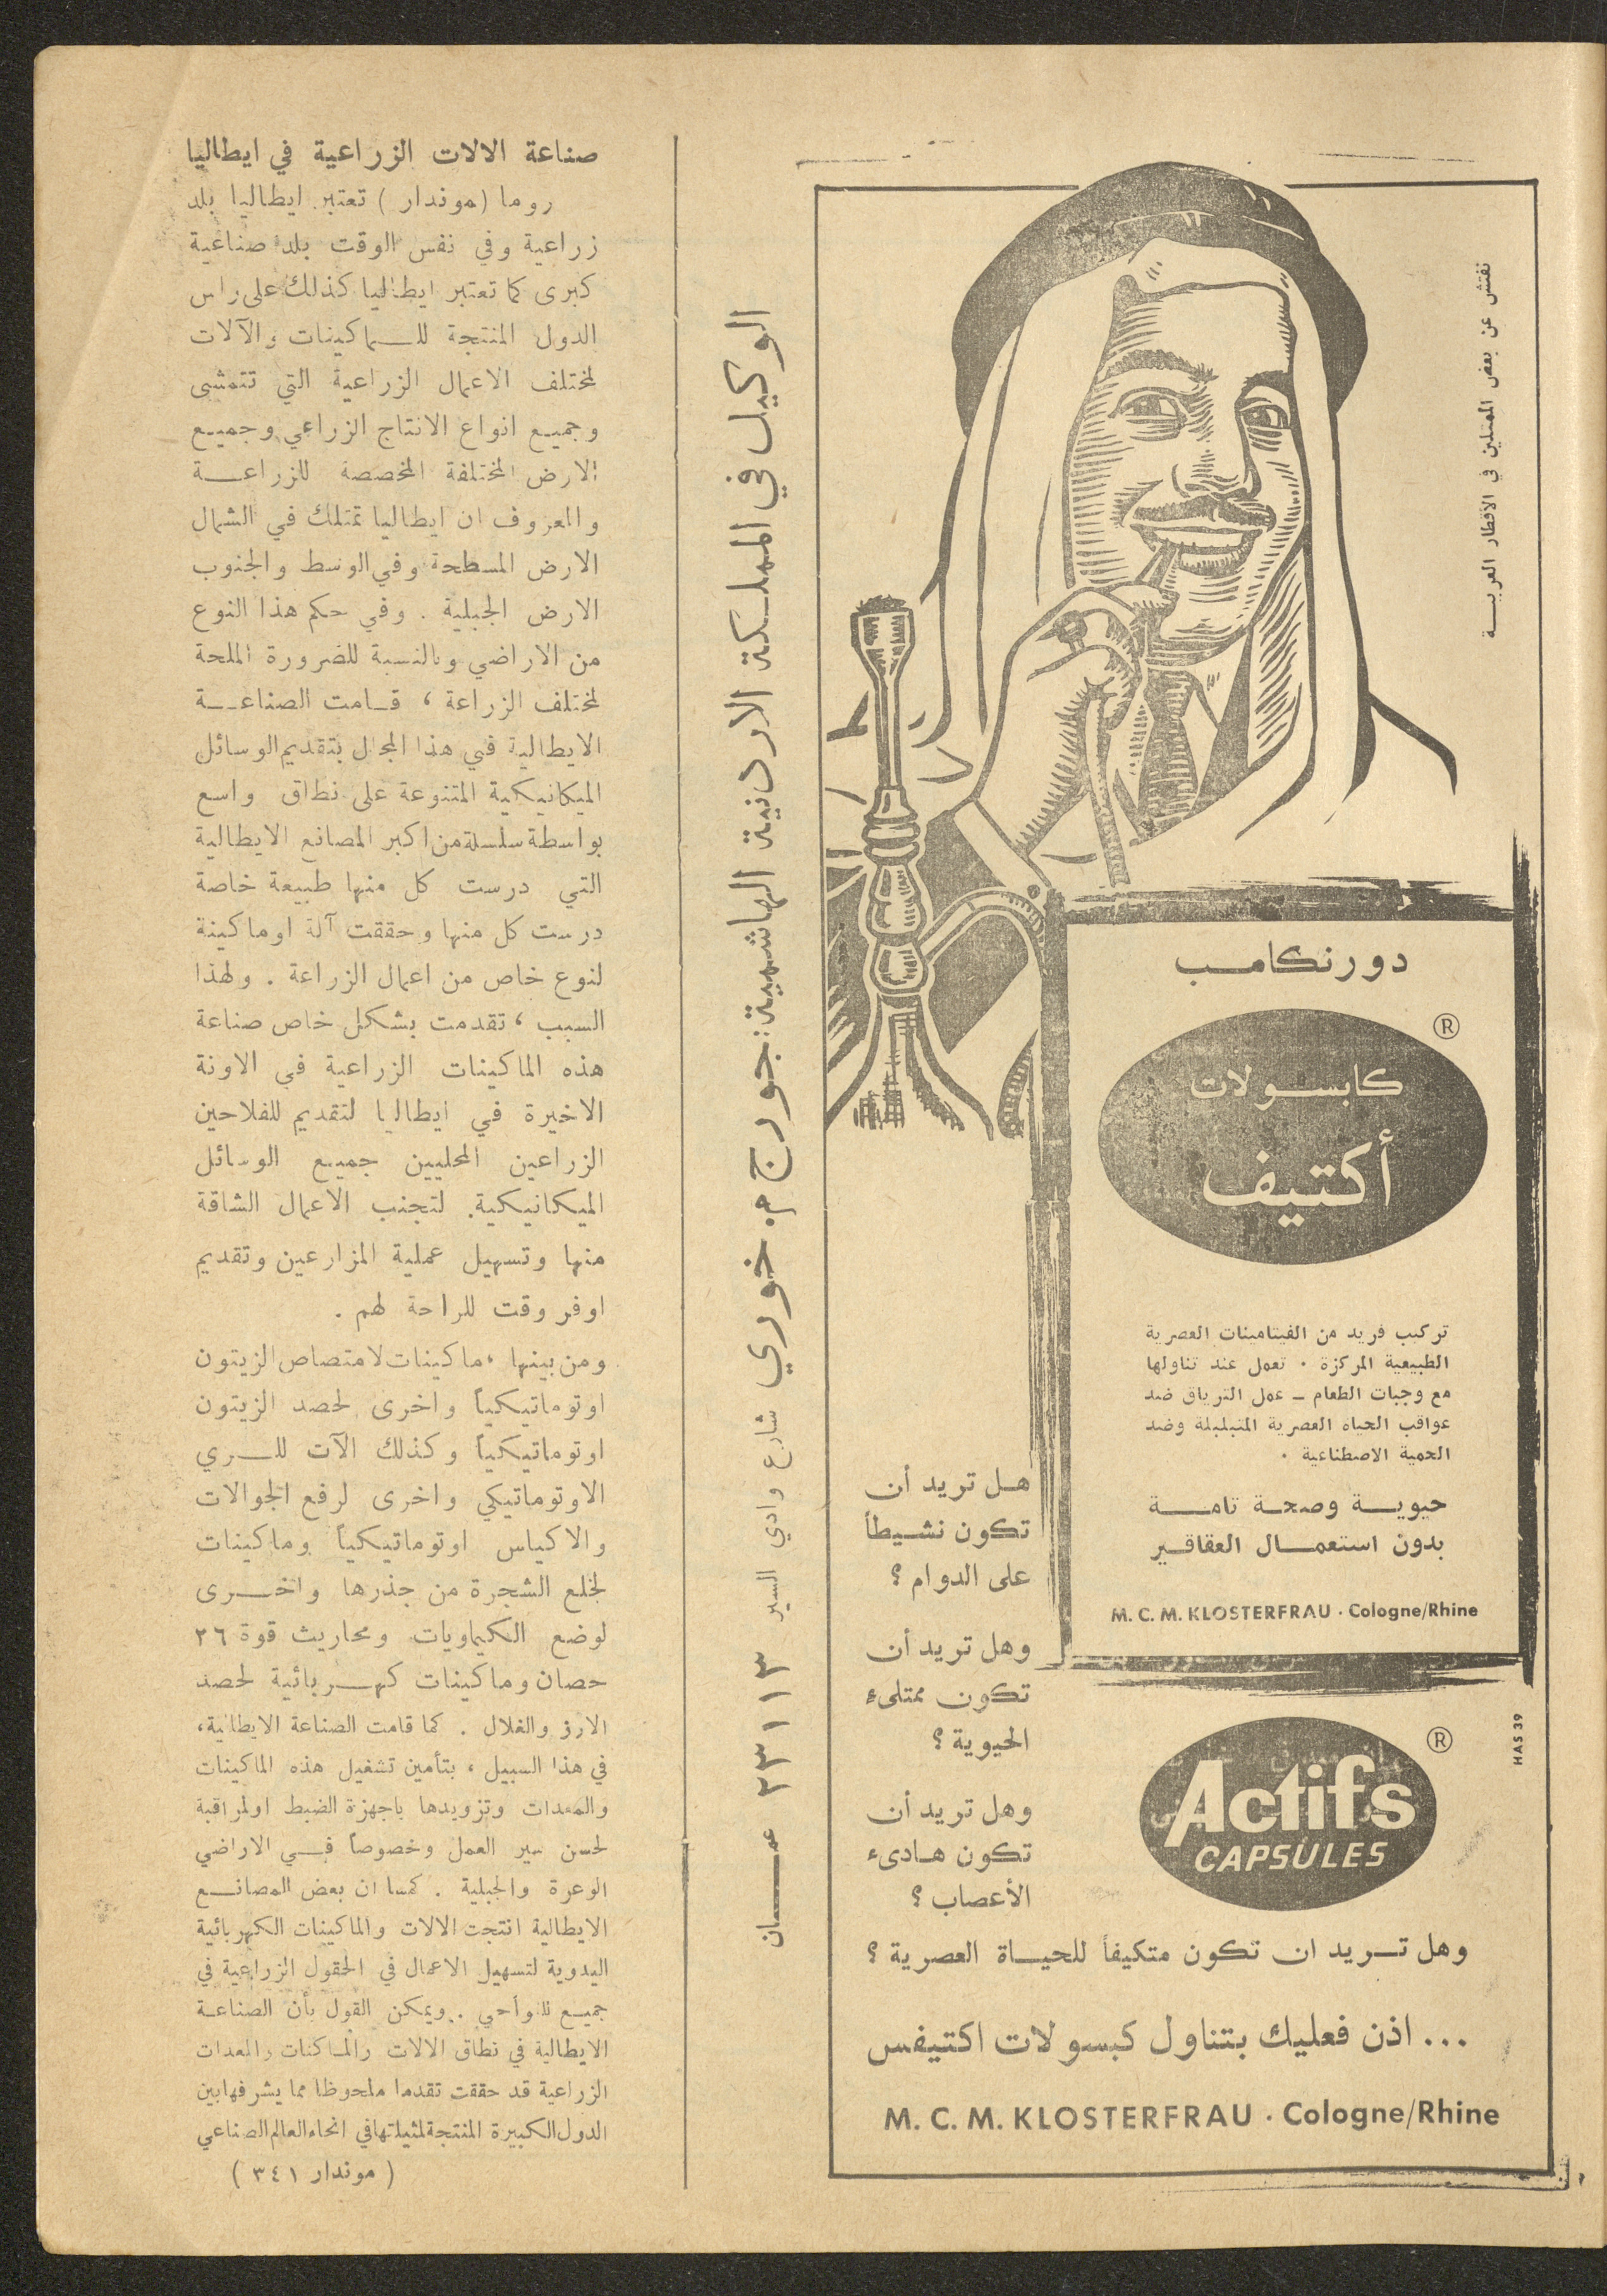 نفتش عن بعض الممثلين في الاقطار العربية
دورنكامب
®
كابسولات
أكتيف
تركيب فريد من الفيتامينات العصرية
الطبيعية المركزة . تعمل عند تناولها
مع وجبات الطعام – عمل الترياق ضد
عواقب الحياه العصرية المتبلبلة وضد
الحمية الاصطناعية .
حيوية وصحة تامة
بدون استعمال العقاقير
M. C. M. KLOSTERFRAU · Cologne/Rhine
هل تريد أن
تكون نشيطاً
على الدوام ؟
وهل تريد أن
تكون ممتلىء
الحيوية ؟
وهل تريد أن
تكون هادىء
الأعصاب ؟
HAS 39
®
Actifs
CAPSULES
وهل تريد ان تكون متكيفاً للحياة العصرية ؟
... اذن فعليك بتناول كبسولات اكتيفس
M. C. M. KLOSTERFRAU · Cologne/Rhine
الوكيل في المملكة الاردنية الهاشمية : جورج م. خوري شارع وادي السير ٢٣١١٣ عمان
صناعة الالات الزراعية في ايطاليا
روما (موندار) تعتبر ايطاليا بلد
زراعية وفي نفس الوقت بلد صناعية
كبرى كما تعتبر ايطاليا كذلك على راس
الدول المنتجة للماكينات والآلات
لمختلف الاعمال الزراعية التي تتمشى
وجميع انواع الانتاج الزراعي وجميع
الارض المختلفة المخصصة للزراعة
والمعروف ان ايطاليا تمتلك في الشمال
الارض المسطحة وفي الوسط والجنوب
الارض الجبلية . وفي حكم هذا النوع
من الاراضي وبالنسبة للضرورة الملحة
لمختلف الزراعة ، قامت الصناعة
الايطالية في هذا المجال بتقديم الوسائل
الميكانيكية المتنوعة على نطاق واسع
بواسطة سلسلة من اكبر المصانع الايطالية
التي درست كل منها طبيعة خاصة
درست كل منها وحققت آلة او ماكينة
لنوع خاص من اعمال الزراعة . ولهذا
السبب ، تقدمت بشكل خاص صناعة
هذه الماكينات الزراعية في الاونة
الاخيرة في ايطاليا لتقديم للفلاحين
الزراعين المحليين جميع الوسائل
الميكانيكية. لتجنب الاعمال الشاقة
منها وتسهيل عملية المزارعين وتقديم
اوفر وقت للراحة لهم .
ومن بينها ، ماكينات لامتصاص الزيتون
اوتوماتيكياً واخرى لحصد الزيتون
اوتوماتيكياً وكذلك الآت للري
الاوتوماتيكي واخرى لرفع الجوالات
والاكياس اوتوماتيكياً وماكينات
لخلع الشجرة من جذرها واخرى
لوضع الكيماويات ومحاريث قوة ٢٦
حصان وماكينات كهربائية لحصد
الارز والغلال . كما قامت الصناعة الايطالية،
في هذا السبيل ، بتأمين تشغيل هذه الماكينات
والمعدات وتزويدها باجهزة الضبط اولمراقبة
لحسن سير العمل وخصوصاً في الاراضي
الوعرة والجبلية . كما ان بعض المصانع
الايطالية انتجت الالات والماكينات الكهربائية
اليدوية لتسهيل الاعمال في الحقول الزراعية في
جميع النواحي . ويمكن القول بأن الصناعة
الايطالية في نطاق الالات والماكنات والمعدات
الزراعية قد حققت تقدما ملحوظا مما يشرفها بين
الدول الكبيرة المنتجة لمثيلتها في انحاء العالم الصناعي
( موندار ٣٤١ )